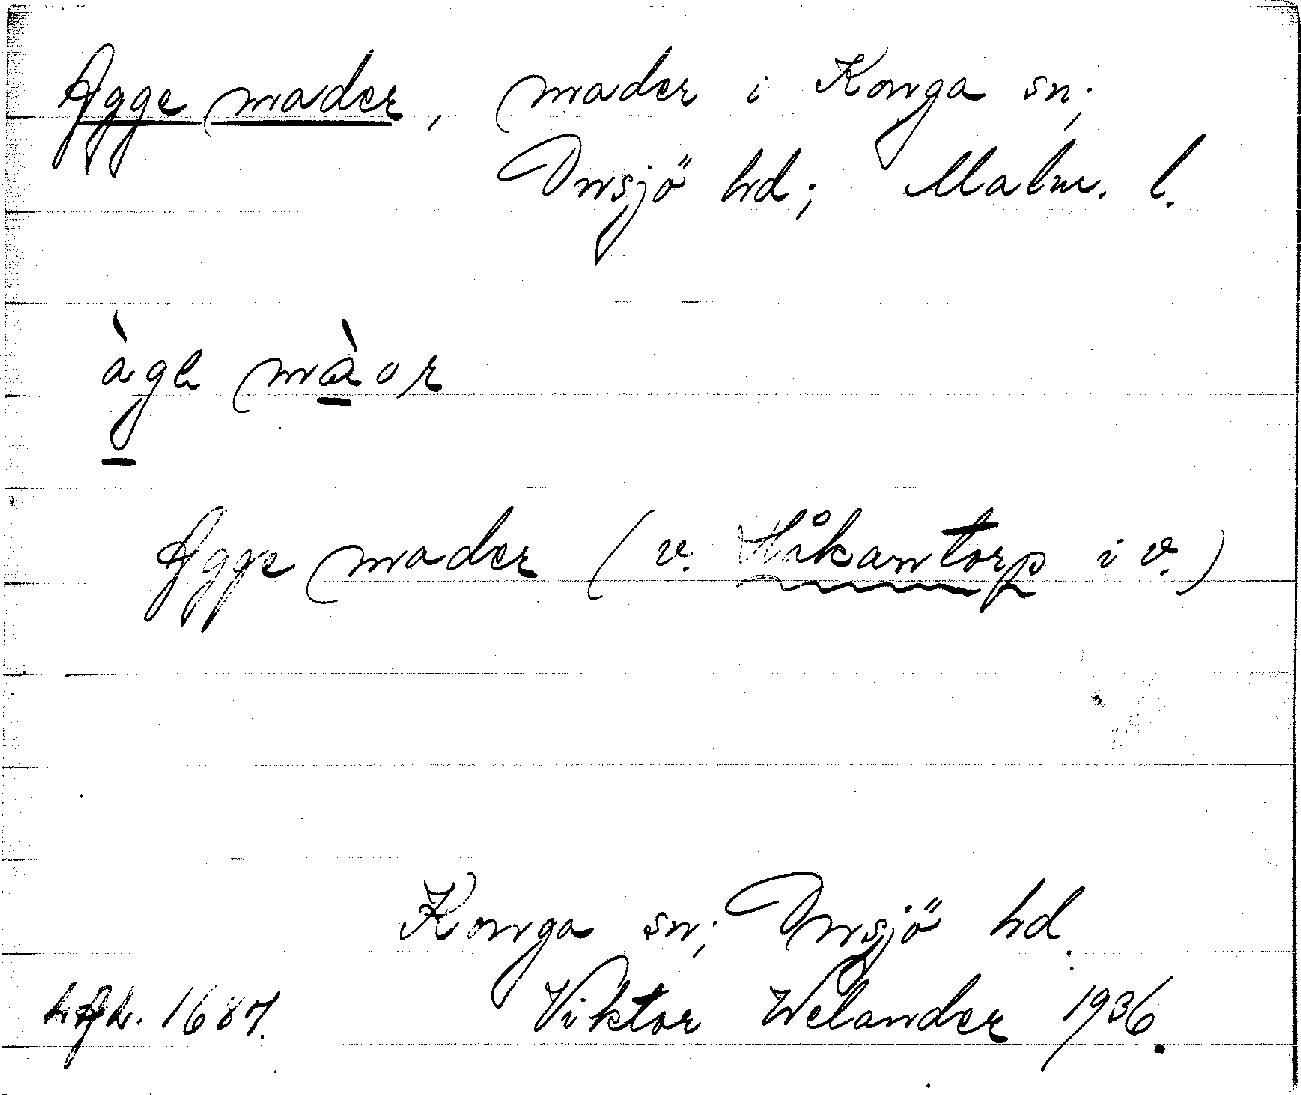 Agge mader, mader i Konga sn;
Onsjö hd; Malm. l.
àge màor
Agge mader (v. Håkantorp i v.)
Konga sn; Onsjö hd.
1687. Viktor Welander 1936.